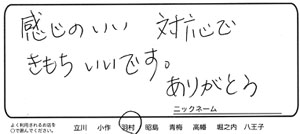 感じのいい 対応で
きもちいいです。
ありがとう
ニックネーム
よく利用されるお店を
○で囲んでください。
立川 小作 羽村 昭島 青梅 高幡 堀之内 八王子